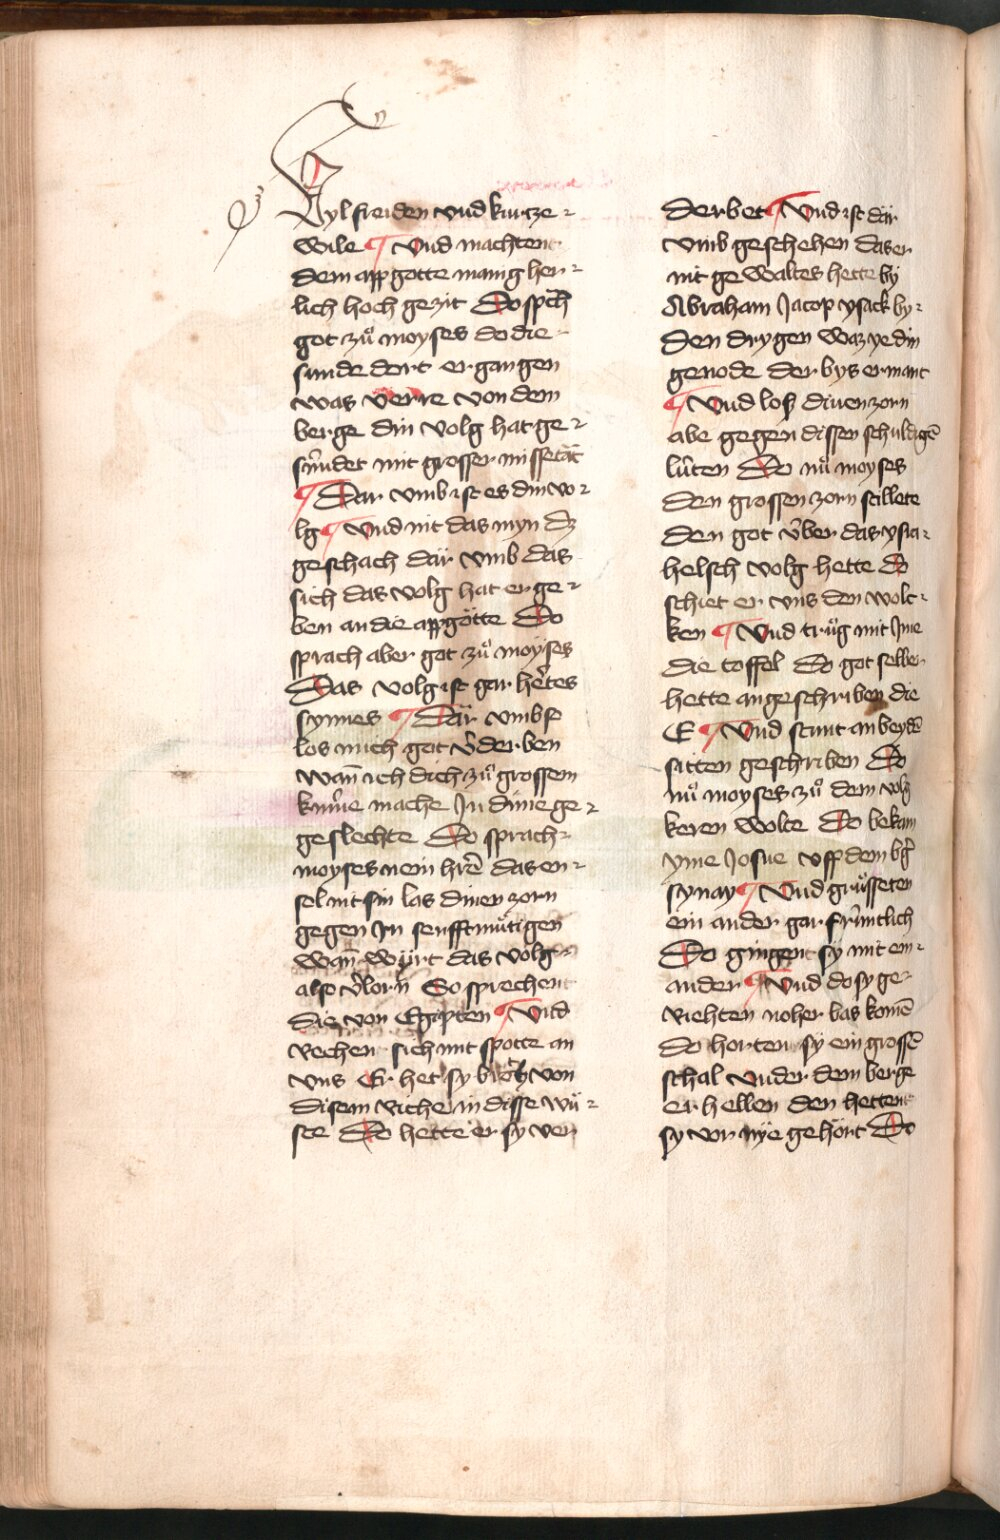 Vyl freiden vnd kurtze-
wile ¶ Vnd machtent
dem appgotte manig her-
lich hoch gezit Do spch
got zů moyses do die-
sunde dort ergangen
was verre von dem
berge din volg hat ge-
sundet mit grosser missetāt
¶ Dar vmb ist es din vo-
lg ¶ Vnd nit das myn dz
geschach där vmb das
sich das volg hat erge-
ben an die appgötte Do
sprach aber got zů moÿses
Das volg ist gar hertes
synnes ¶ Där vmb so
los mich got v̄derben
wañ ich dich zů grossem
kunne mache Jn dinne ge-
geslechte Do sprach-
moyses nein hrē das en-
sel nit sin las dinen zorn
gegen Jn senfftmütigen
wañ würt das volg-
also v̄lorn So sprechent
die von Egipten ¶ Vnd
rechen sich mit spotte an
vns Er het sy broht von
disem riche in disse wü-
ste Do hette er sy ver
derbet ¶ Vnd ist där
vmb geschehen das er
nit gewaltes hette by
Abraham Jacop ysack by-
den drygen waz ye din
genode der bys ermant
¶ Vnd losz dinen zorn
abe gegen dissen schuldigē
lüten Do nů moyses
den grossen zorn stillete
den got v̈ber das ysra-
helsch volg hette do
schiet er vns den wolc-
ken ¶ Vnd trůg mit Jme
die toffel Do got selber
hette angeschriben die
E ¶ Vnd stunt an beydē
sitten geschriben Do
nů moyses zů dem volg
keren wolte Do bekam
yme Josue vff dem bg̃
synay ¶ Vnd grůsseten
ein ander gar früntlich
Do gingent sy mit ein-
ander ¶ Vnd do sy ge-
riehten noher bas komē
do horten sy ein grossē
schal vnder dem berge
erhellen den hettent
sy vor nÿe gehört Do